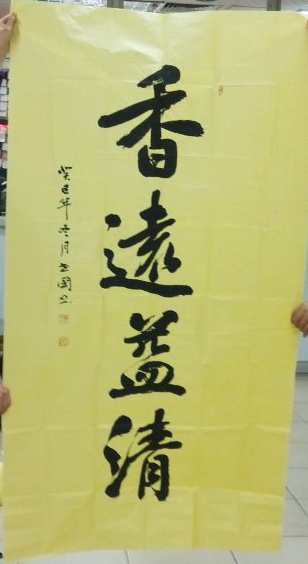 香遠益清
癸巳年冬月